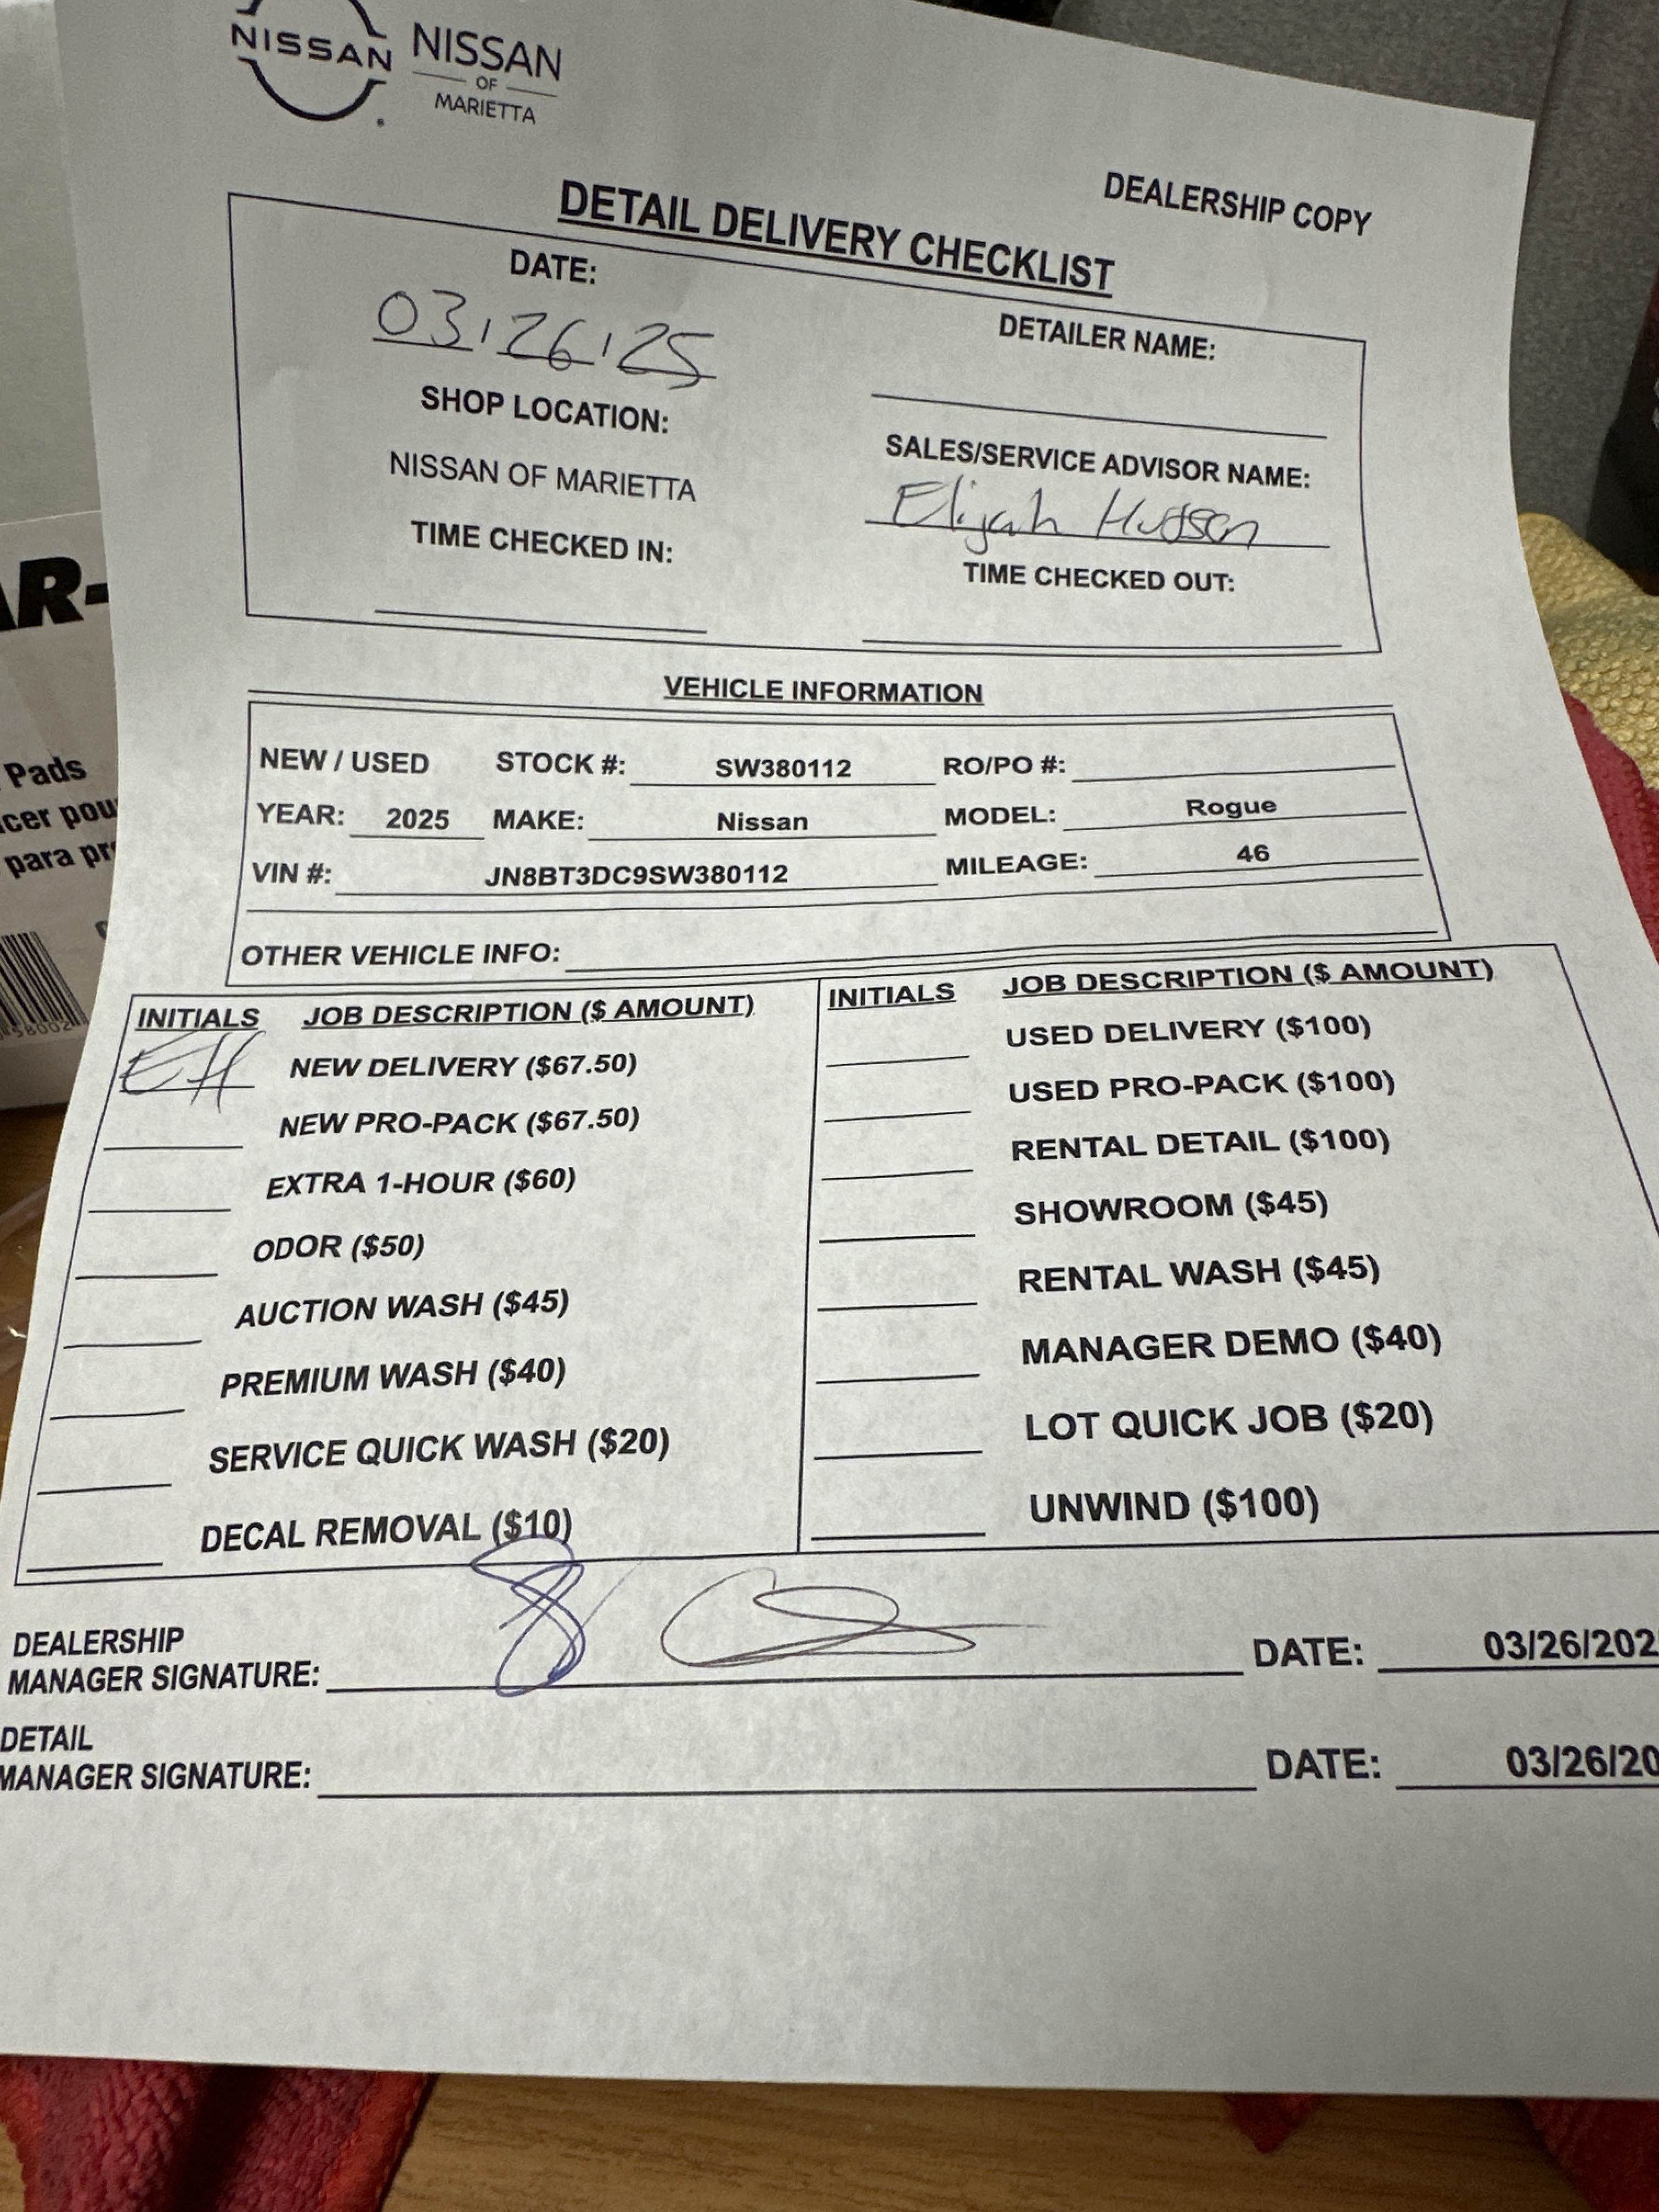 NISSAN
NISSAN
OF
MARIETTA
DEALERSHIP COPY
DETAIL DELIVERY CHECKLIST
DATE:
03/26/25
DETAILER NAME:
SHOP LOCATION:
NISSAN OF MARIETTA
SALES/SERVICE ADVISOR NAME:
Elijah Hudson
TIME CHECKED IN:
TIME CHECKED OUT:
VEHICLE INFORMATION
NEW / USED STOCK #: SW380112 RO/PO #:
YEAR: 2025 MAKE: Nissan MODEL: Rogue
VIN #: JN8BT3DC9SW380112 MILEAGE: 46
OTHER VEHICLE INFO:
INITIALS JOB DESCRIPTION ($ AMOUNT)
EH NEW DELIVERY ($67.50)
NEW PRO-PACK ($67.50)
EXTRA 1-HOUR ($60)
ODOR ($50)
AUCTION WASH ($45)
PREMIUM WASH ($40)
SERVICE QUICK WASH ($20)
DECAL REMOVAL ($10)
INITIALS JOB DESCRIPTION ($ AMOUNT)
USED DELIVERY ($100)
USED PRO-PACK ($100)
RENTAL DETAIL ($100)
SHOWROOM ($45)
RENTAL WASH ($45)
MANAGER DEMO ($40)
LOT QUICK JOB ($20)
UNWIND ($100)
DEALERSHIP
MANAGER SIGNATURE: DATE: 03/26/202
DETAIL
MANAGER SIGNATURE: DATE: 03/26/20
AR-
Pads
cer pou
para pr